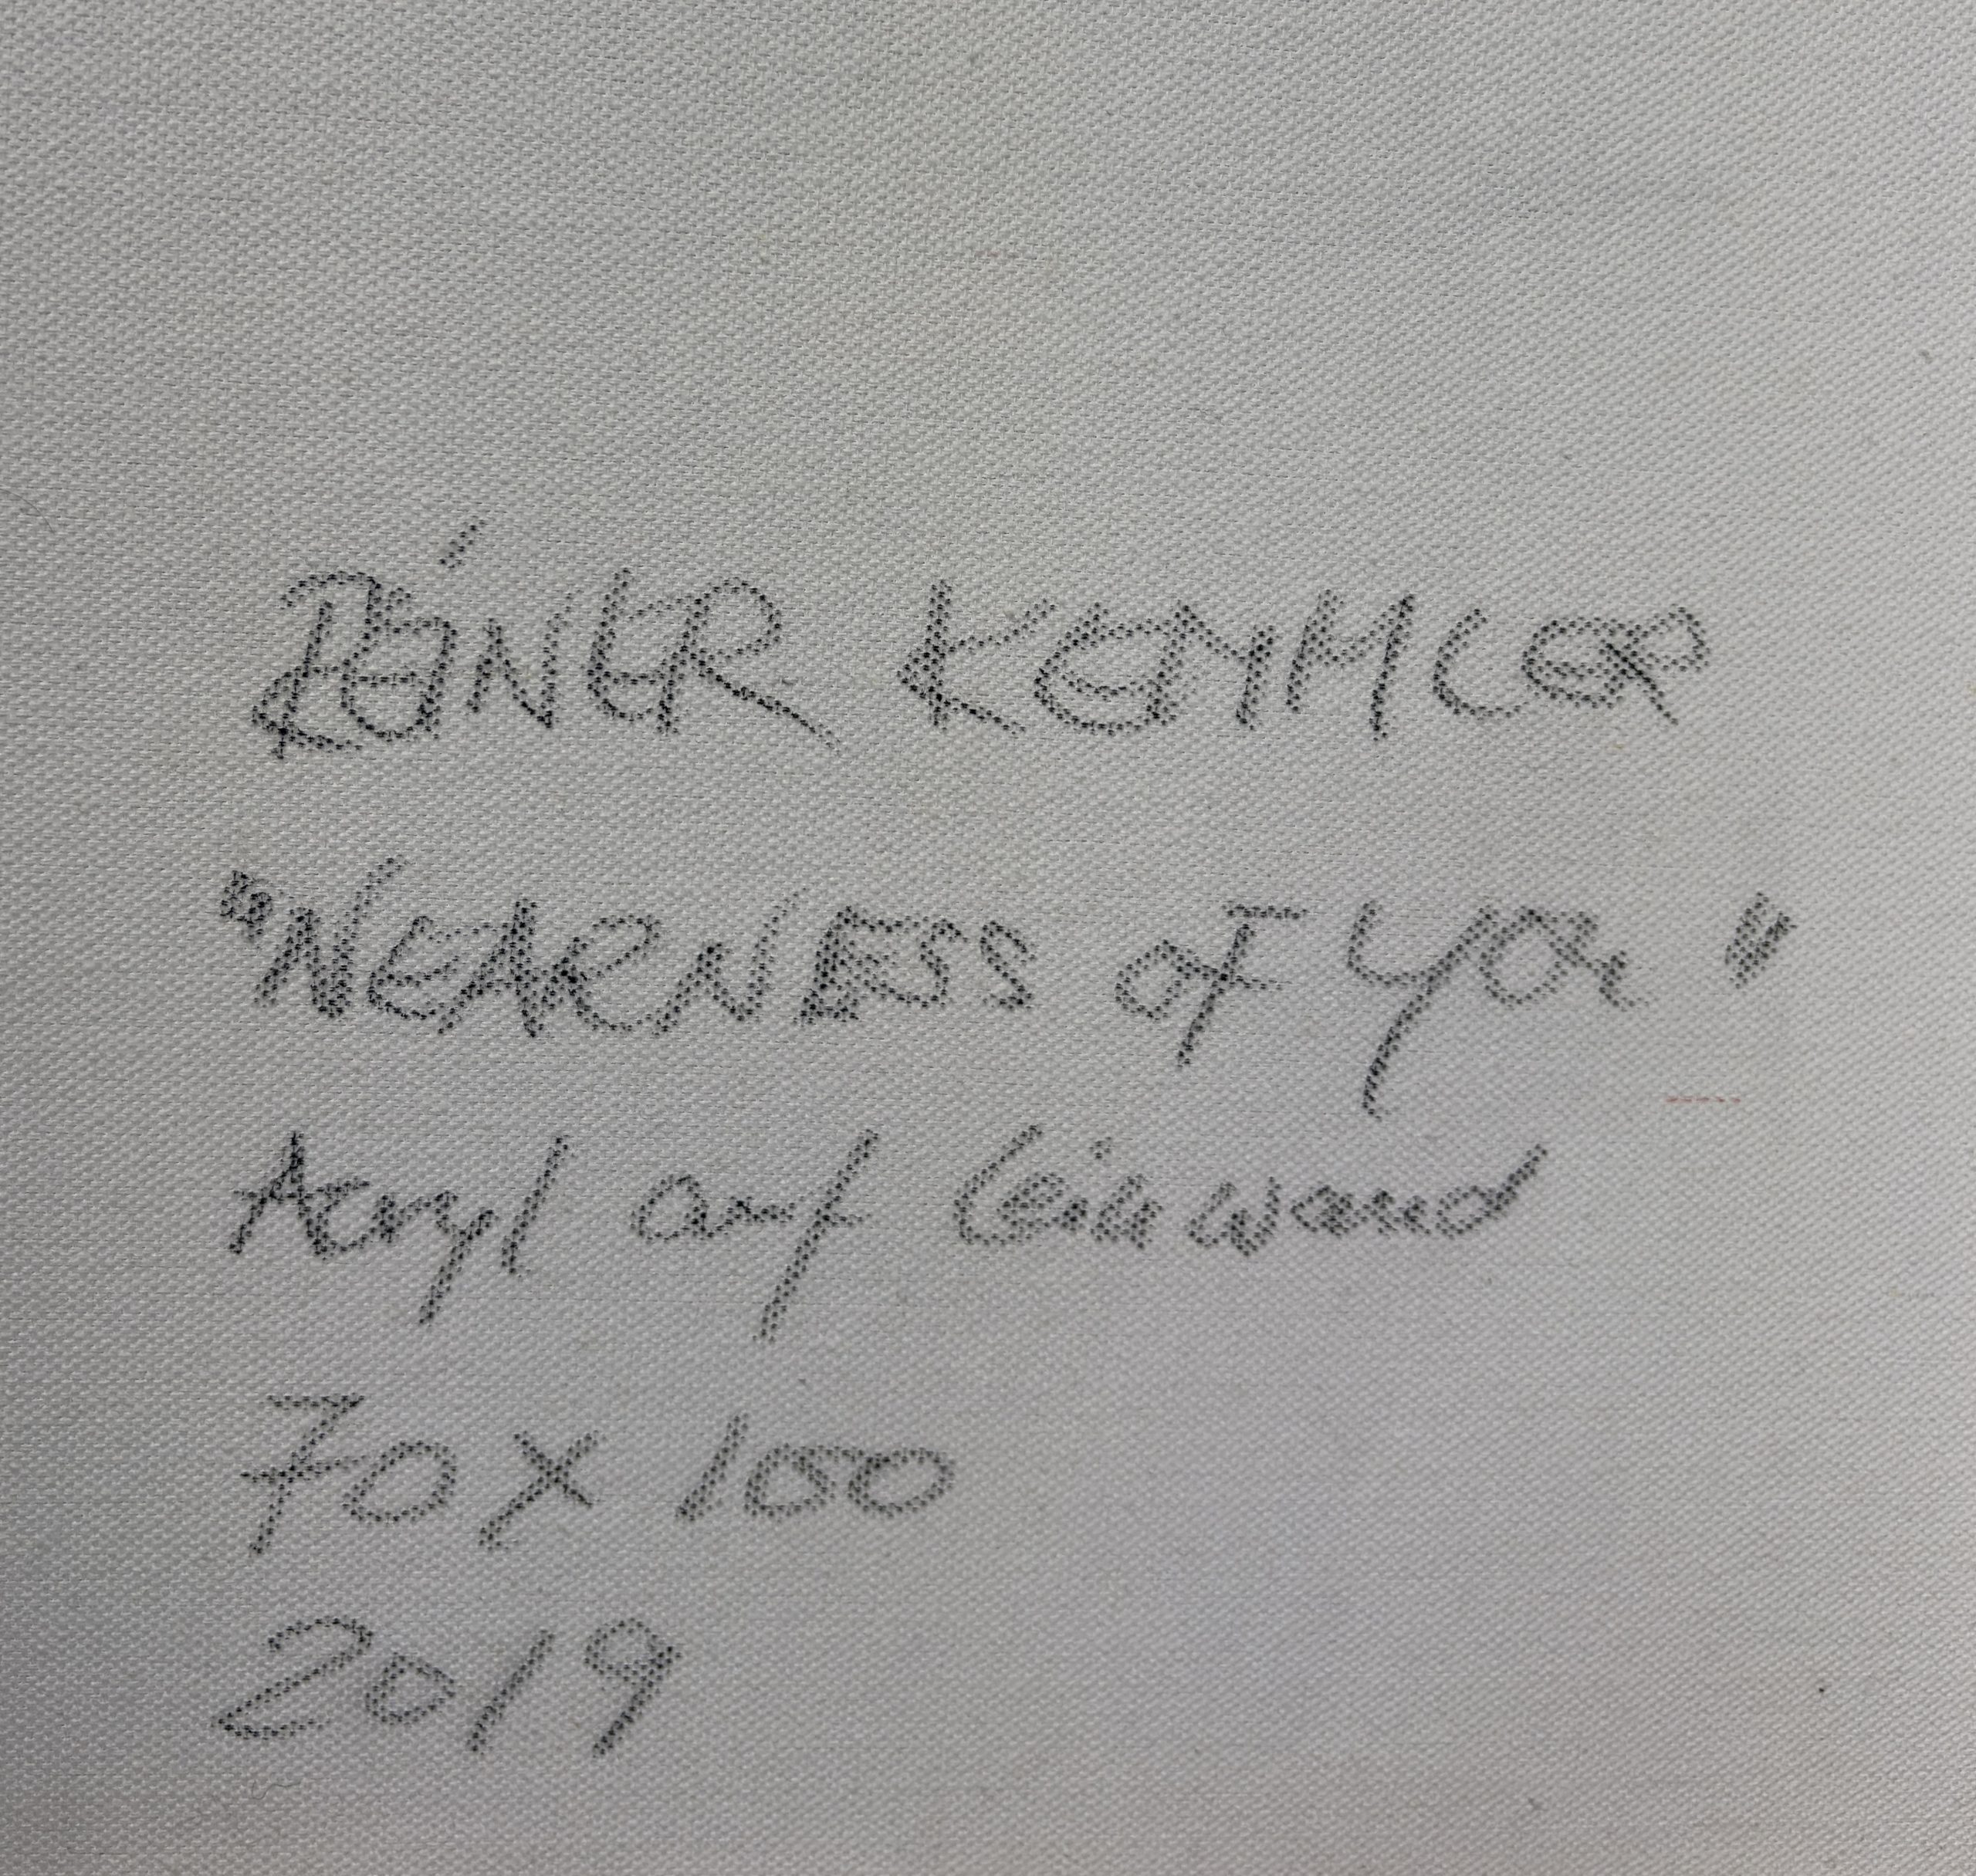 REiNER KEMMLER
"NEARNESS OF YOU"
Acryl auf Leinwand
70 x 100
2019